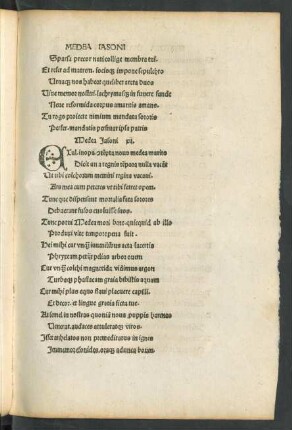 MEDEA IASONI
Sparsa precor nati collige membra tui.
Et refer ad matrem. socioq; impone sepulchro
Urnaq; nos habeat quelibet arcta duos
Uiue memor nostri. lachrymasq; in funere funde
Neue reformida corpus amantis amans.
Tu rogo proiecte nimium mandata sororis
Perfer. mandatis perfruar ipsa patris
Medea Jasoni xii.
EXul. inops. cōtēpta nouo medea marito
Dicit an a regnis tēpora nulla vacāt
At tibi colchorum memini regina vacaui.
Ars mea cum peteres vt tibi ferret opem.
Tunc que dispensant mortalia fata sorores
Debuerant fusos euoluisse suos.
Tunc potui Medea mori bene. quicquid ab illo
Produxi vite tempore pena fuit.
Hei mihi cur vnq̄ iuuenilibus acta lacertis
Phryxeam petijt pelias arbor ouem
Cur vnq̄ colchi magnetida vidimus argon
Turbaq; phasiacam graia bibistis aquam
Cur mihi plus equo flaui placuere capilli.
Et decor. et lingue gratia ficta tue.
Aut semel in nostras quoniā noua puppis harenas
Uenerat. audaces attuleratq; viros.
Isset anhelatos non premedicatus in ignes
Immemor esonides. oraq; adunca boum.